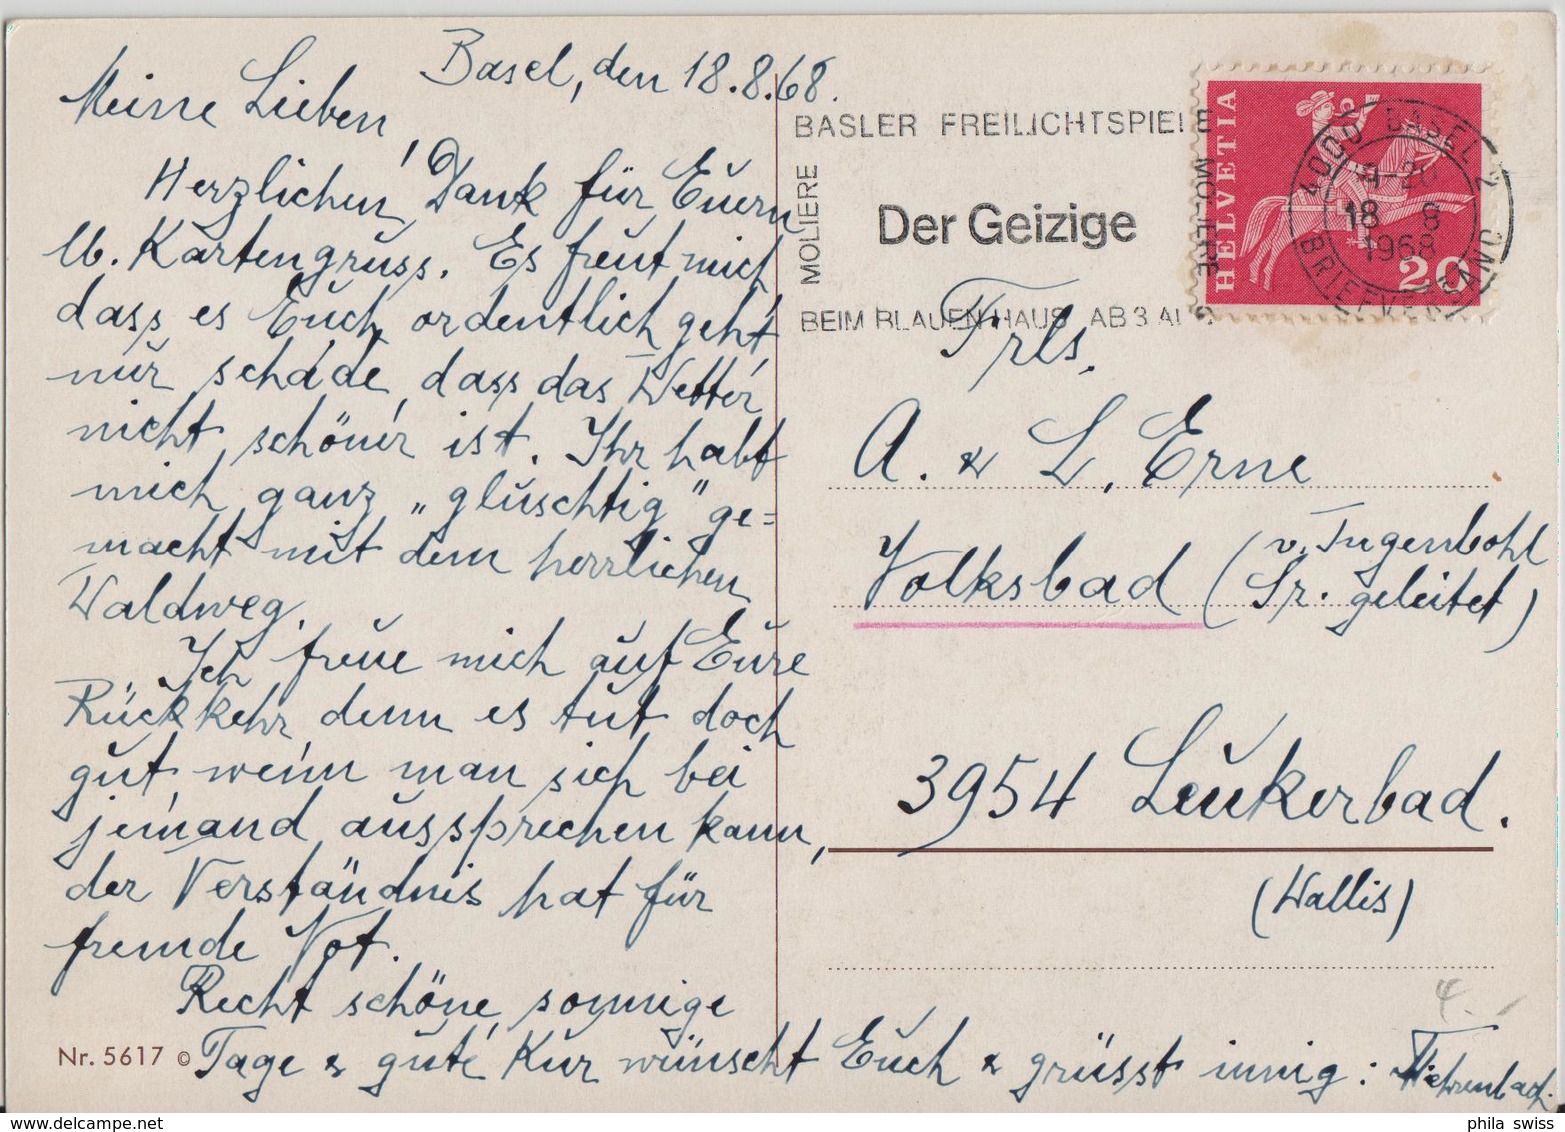 Basel, den 18.8.68.
Meine Lieben,
Herzlichen Dank für Euern
lb. Kartengruss. Es freut mich
dass es Euch ordentlich geht,
nur schade, dass das Wetter
nicht schöner ist. Ihr habt
mich ganz „gluschtig" ge=
macht mit dem herrlichen
Waldweg.
Ich freue mich auf Eure
Rückkehr, denn es tut doch
gut, wenn man sich bei
jemand aussprechen kann,
der Verständnis hat für
fremde Not.
Recht schöne, sonnige
Tage & gute Kur wünscht Euch & grüsst innig:
Nr. 5617 ©
BASLER FREILICHTSPIELE
MOLIERE
Der Geizige
MOLIERE
BEIM BLAUEN HAUS AB 3 AUG
HELVETIA
20
4000 BASEL 2
18 8
1968
BRIEFVERSAND
Frls.
A. & L. Erne
Volksbad (v. Ingenbohl
Sr. geleitet)
3954 Leukerbad.
(Wallis)
4.-
phila swiss